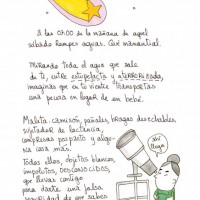 A las 05:00 de la mañana de aquel
sábado rompes aguas. Qué manantial.
Mirando toda el agua que sale
de ti, entre estupefacta y aterrorizada,
imaginas que en tu vientre transportas
una pecera en lugar de un bebé.
Maleta: camisón, pañales, bragas desechables,
sujetador de lactancia,
compresas posparto y algu-
na cosa más.
Todos ellos, objetos blancos,
impolutos, DESCONOCIDOS,
que llevas contigo
para darte una falsa
seguridad de que sabes
¡Ahí
llega!